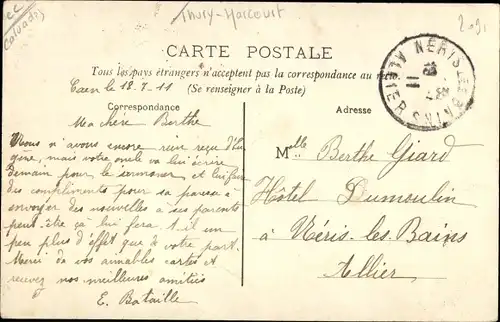 Calvados
Thury-Harcourt
CARTE POSTALE
Tous les pays étrangers n'acceptent pas la correspondance au
Caen le 12-7-11 (Se renseigner à la Poste)
Correspondance
Ma chère Berthe
Nous n'avons encore rien reçu d'Eu
gène, mais votre oncle va lui écrire
demain pour le sermoner et lui faire
des compliments pour sa paresse à
envoyer des nouvelles à ses parents
peut-être çà lui fera t-il un
peu plus d'effet que de votre part.
Merci de vos aimables cartes et
recevez nos meilleures amitiés
E. Bataille
NERIS LES BAINS
ALLIER
11
Adresse
Melle Berthe Giard
Hôtel Dumoulin
à Néris-les-Bains
Allier